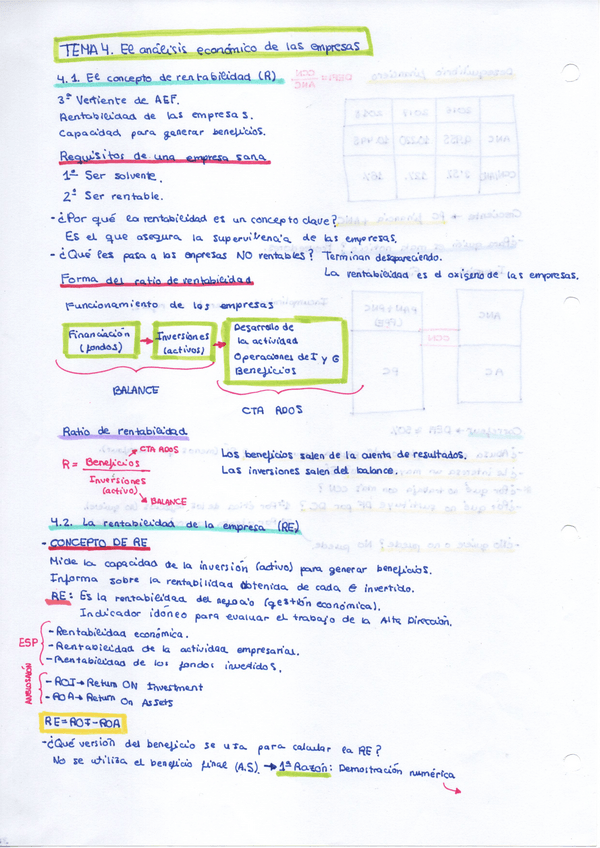 TEMA 4. El análisis económico de las empresas
4.1. El concepto de rentabilidad (R)
3ª Vertiente de AEF.
Rentabilidad de las empresas.
Capacidad para generar beneficios.
Requisitos de una empresa sana
1º Ser solvente.
2º Ser rentable.
- ¿Por qué la rentabilidad es un concepto clave?
Es el que asegura la supervivencia de las empresas.
- ¿Qué les pasa a las empresas NO rentables? Terminan desapareciendo.
La rentabilidad es el oxígeno de las empresas.
Forma del ratio de rentabilidad
Funcionamiento de las empresas
Financiación (fondos) → Inversiones (activos) → Desarrollo de la actividad
Operaciones de I y G
Beneficios
BALANCE
CTA RDOS
Ratio de rentabilidad
CTA RDOS
R = Beneficios
Inversiones
(activo)
BALANCE
Los beneficios salen de la cuenta de resultados.
Las inversiones salen del balance.
4.2. La rentabilidad de la empresa (RE)
- CONCEPTO DE RE
Mide la capacidad de la inversión (activo) para generar beneficios.
Informa sobre la rentabilidad obtenida de cada € invertido.
RE: Es la rentabilidad del negocio (gestión económica).
Indicador idóneo para evaluar el trabajo de la Alta Dirección.
ESP
- Rentabilidad económica.
- Rentabilidad de la actividad empresarial.
- Rentabilidad de los fondos invertidos.
ANGLOSAJÓN
- ROI → Return ON Investment
- ROA → Return On Assets
RE = ROI - ROA
- ¿Qué versión del beneficio se usa para calcular la RE?
No se utiliza el beneficio final (A.S). → 1ª Razón: Demostración numérica